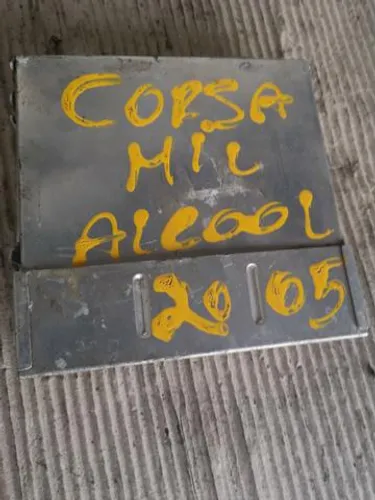 CORSA
MIL
ALCOOL
20 05